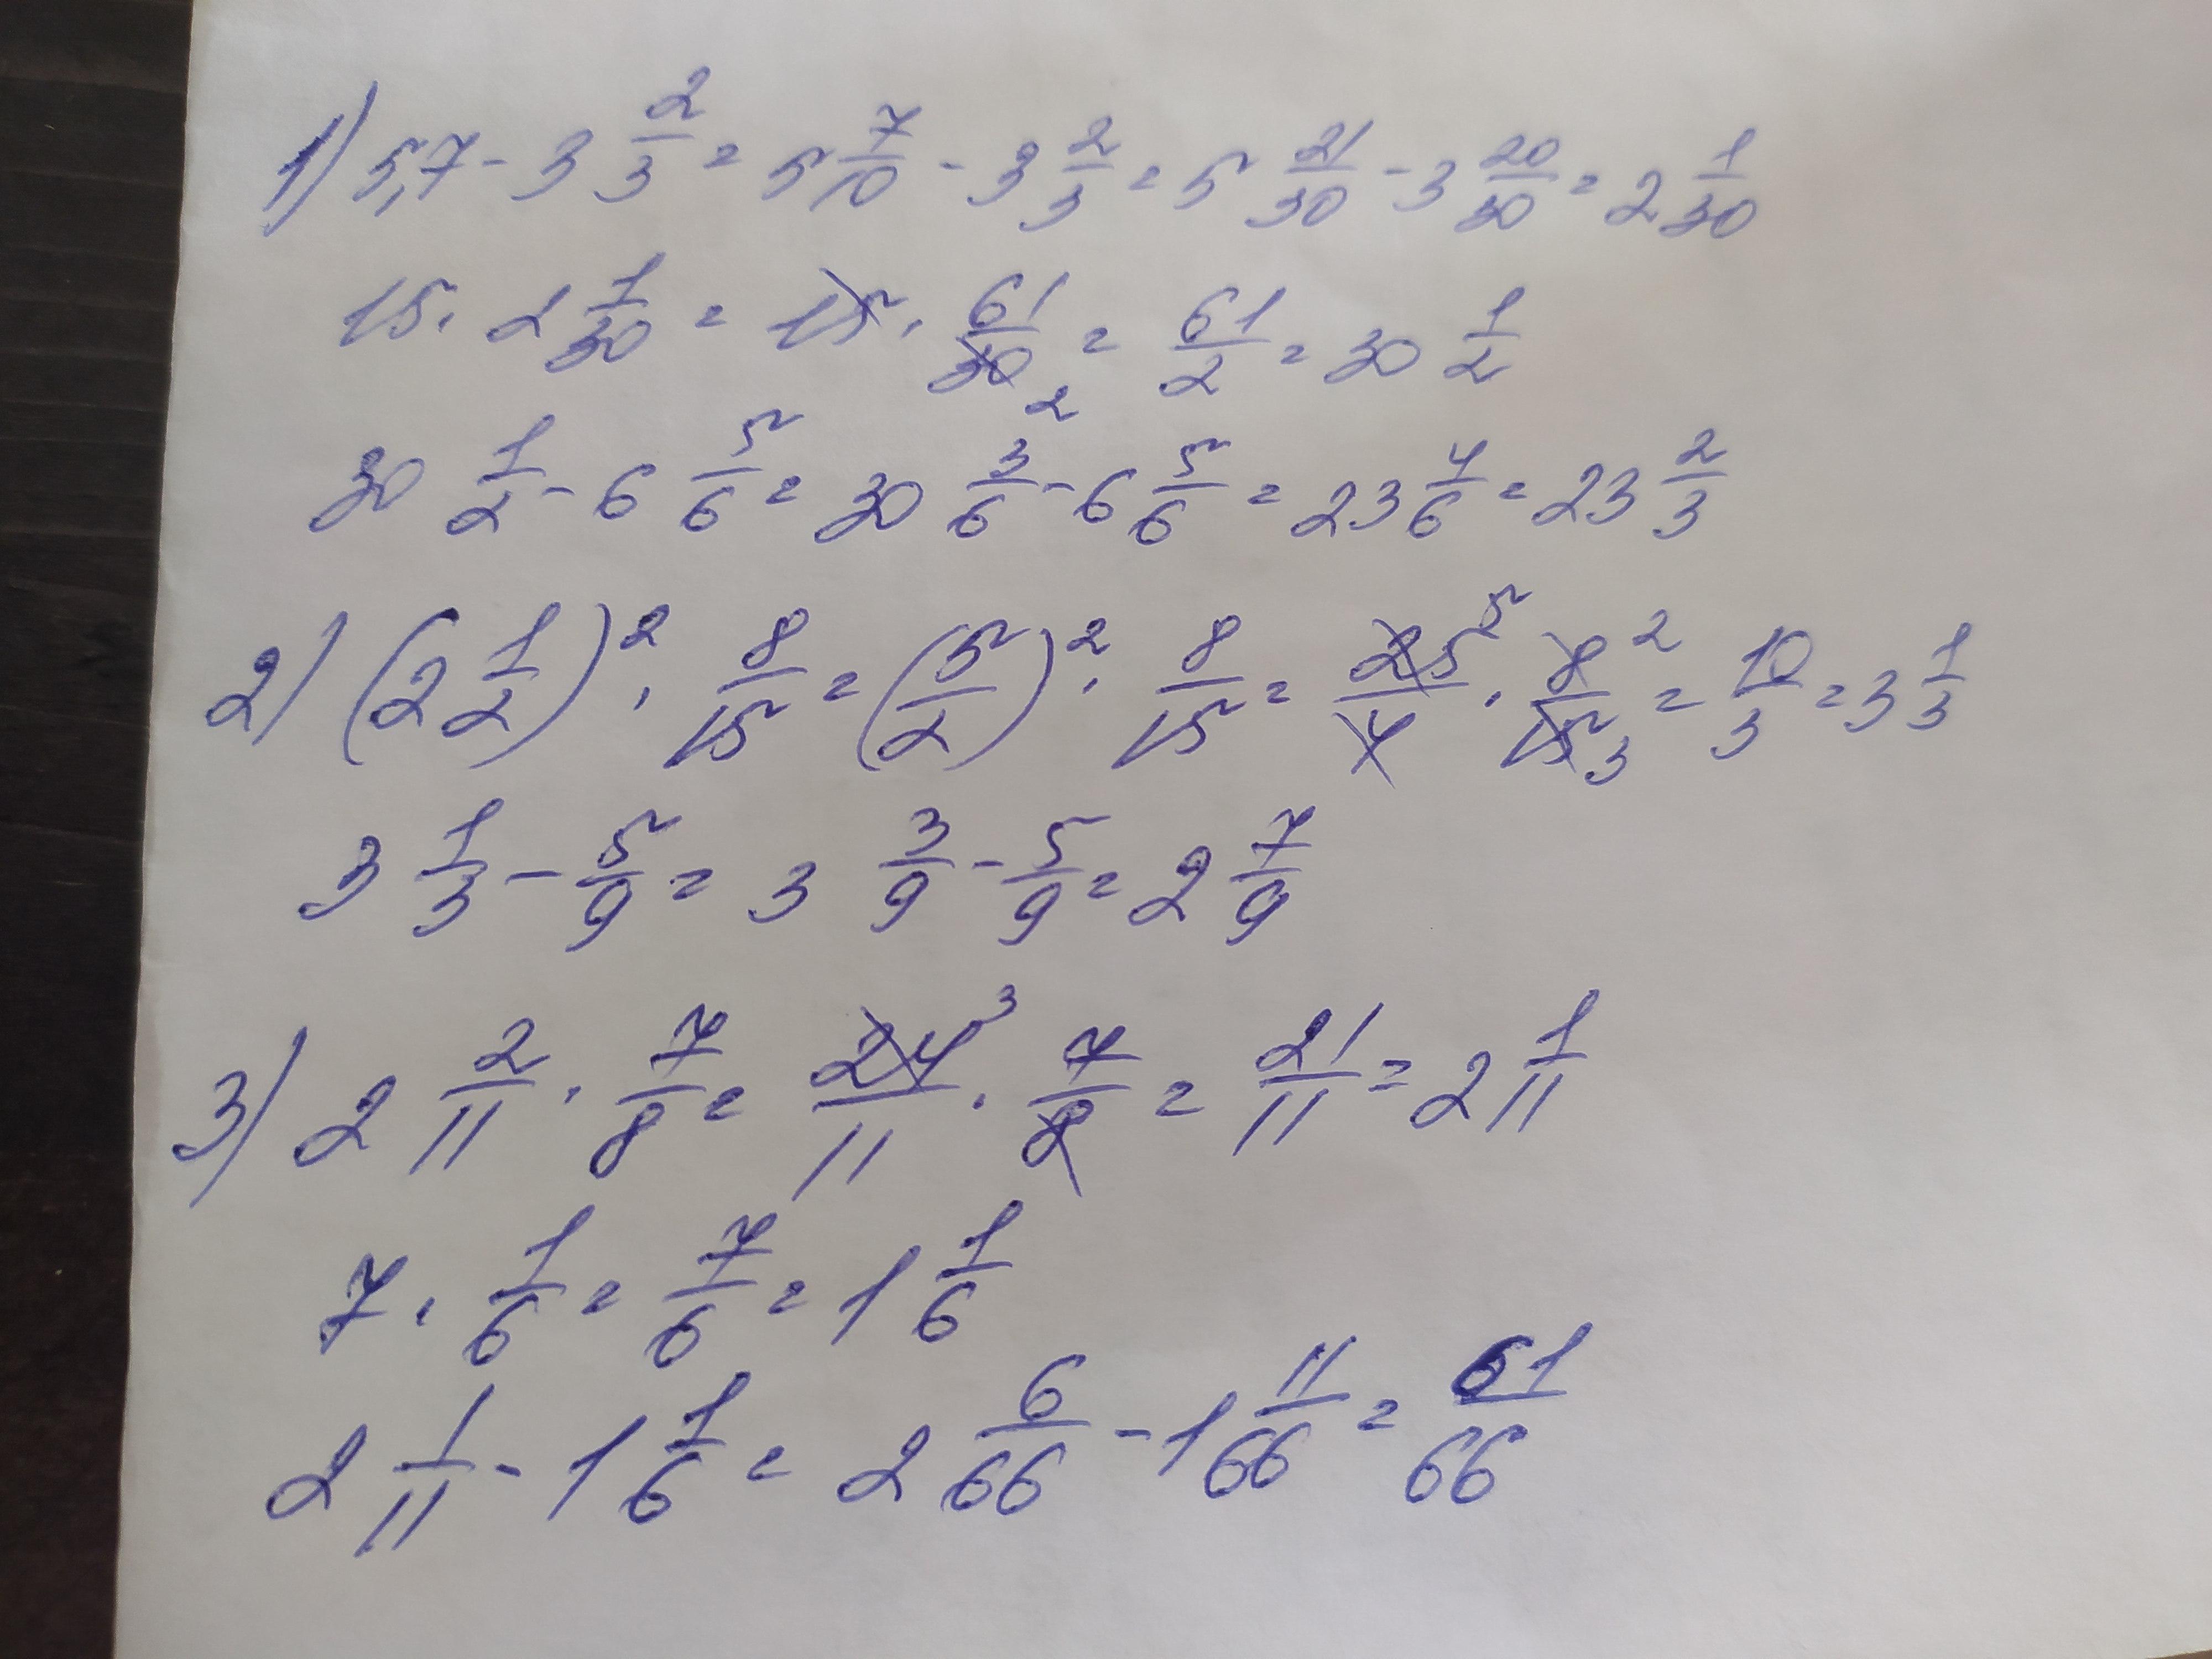 1) 5,7 - 3 2/3 = 5 7/10 - 3 2/3 = 5 21/30 - 3 20/30 = 2 1/30
15 · 2 1/30 = 15 · 61/30 2 = 61/2 = 30 1/2
30 1/2 - 6 5/6 = 30 3/6 - 6 5/6 = 23 4/6 = 23 2/3
2) (2 1/2)² · 8/15 = (5/2)² · 8/15 = 25 5/4 · 8 2/15 3 = 10/3 = 3 1/3
3 1/3 - 5/9 = 3 3/9 - 5/9 = 2 7/9
3) 2 2/11 · 7/8 = 24 3/11 · 7/8 = 21/11 = 2 1/11
7 · 1/6 = 7/6 = 1 1/6
2 1/11 - 1 1/6 = 2 6/66 - 1 11/66 = 61/66